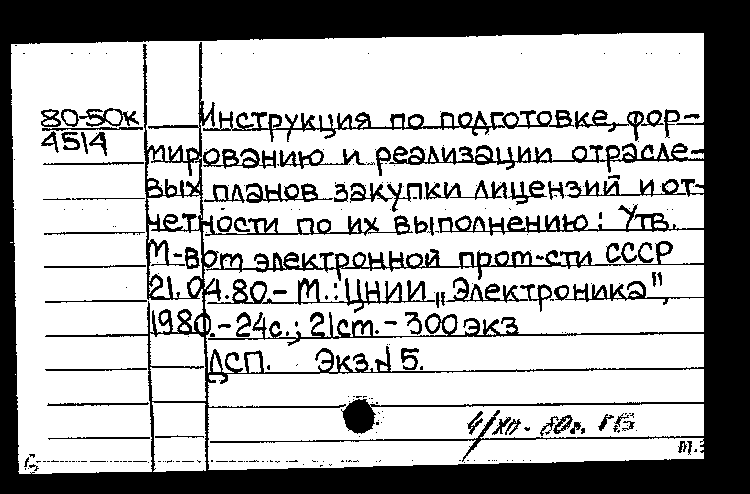 80-50к Инструкция по подготовке, фор-
4514
мированию и реализации отрасле-
вых планов закупки лицензий и от-
четности по их выполнению: Утв.
М-вом электронной пром-сти СССР
21.04.80.- М.: ЦНИИ „Электроника",
1980.- 24с.; 21см.- 300 экз
ДСП. Экз.№5.
4/XII- 80г.